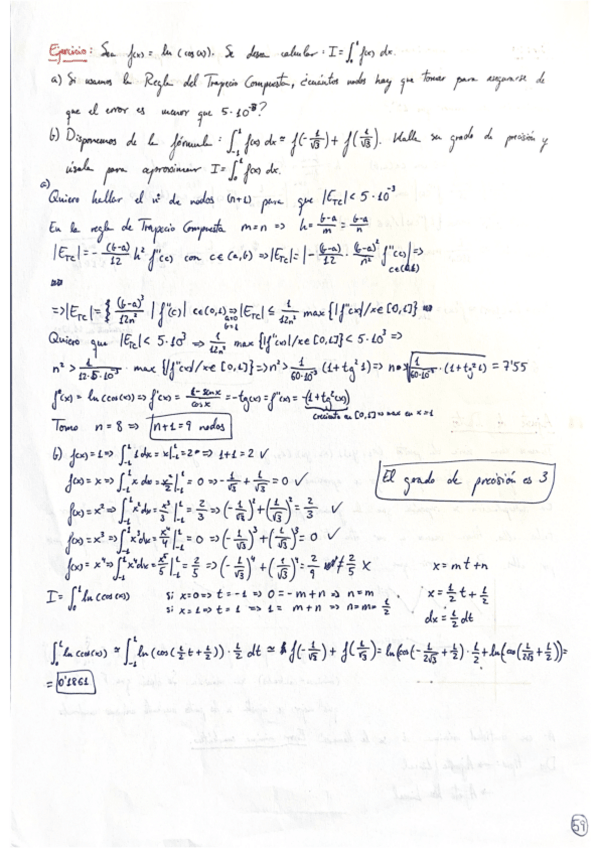 Ejercicio: Sea f(x) = ln (cos(x)). Se desea calcular: I = ∫₀¹ f(x) dx.
a) Si usamos la Regla del Trapecio Compuesta, ¿cuántos nodos hay que tomar para asegurarse de
que el error es menor que 5·10⁻³?
b) Disponemos de la fórmula: ∫₋₁¹ f(x) dx ≃ f(-1/√3) + f(1/√3). Halla su grado de precisión y
úsala para aproximar I = ∫₀¹ f(x) dx.
a)
Quiero hallar el nº de nodos (n+1) para que |E_TC| < 5·10⁻³
En la regla de Trapecio Compuesta m=n => h = (b-a)/m = (b-a)/n
|E_TC| = -(b-a)/12 h² f''(c) con c∈(a,b) => |E_TC| = |-(b-a)/12 · (b-a)²/n² f''(c)| =>
c∈(a,b)
=> |E_TC| = (b-a)³/12n² |f''(c)| c∈(0,1) => |E_TC| ≤ 1/12n² max {|f''(x)|/x∈[0,1]}
a=0
b=1
Quiero que |E_TC| < 5·10⁻³ => 1/12n² max {|f''(x)|/x∈[0,1]} < 5·10⁻³ =>
n² > 1/(12·5·10⁻³) · max {|f''(x)|/x∈[0,1]} => n² > 1/(60·10⁻³) (1+tg²1) => n > √(1/(60·10⁻³) · (1+tg²1)) = 7'55
f(x) = ln(cos(x)) => f'(x) = -senx/cosx = -tg(x) => f''(x) = -(1+tg²(x))
creciente en [0,1] => max en x=1
Tomo n=8 => n+1=9 nodos
b) f(x)=1 => ∫₋₁¹ 1dx = x|₋₁¹ = 2 => 1+1=2 ✓
f(x)=x => ∫₋₁¹ x dx = x²/2|₋₁¹ = 0 => -1/√3 + 1/√3 = 0 ✓
El grado de precisión es 3
f(x)=x² => ∫₋₁¹ x²dx = x³/3|₋₁¹ = 2/3 => (-1/√3)² + (1/√3)² = 2/3 ✓
f(x)=x³ => ∫₋₁¹ x³dx = x⁴/4|₋₁¹ = 0 => (-1/√3)³ + (1/√3)³ = 0 ✓
f(x)=x⁴ => ∫₋₁¹ x⁴dx = x⁵/5|₋₁¹ = 2/5 => (-1/√3)⁴ + (1/√3)⁴ = 2/9 ≠ 2/5 X
x = mt+n
I = ∫₀¹ ln(cos(x)) si x=0 => t=-1 => 0=-m+n => n=m
si x=1 => t=1 => 1=m+n => n=m=1/2
x = 1/2 t + 1/2
dx = 1/2 dt
∫₀¹ ln(cos(x)) ≃ ∫₋₁¹ ln(cos(1/2 t + 1/2)) · 1/2 dt ≃ f(-1/√3) + f(1/√3) = ln(cos(-1/2√3 + 1/2)) · 1/2 + ln(cos(1/2√3 + 1/2)) =
= 0'1861
59